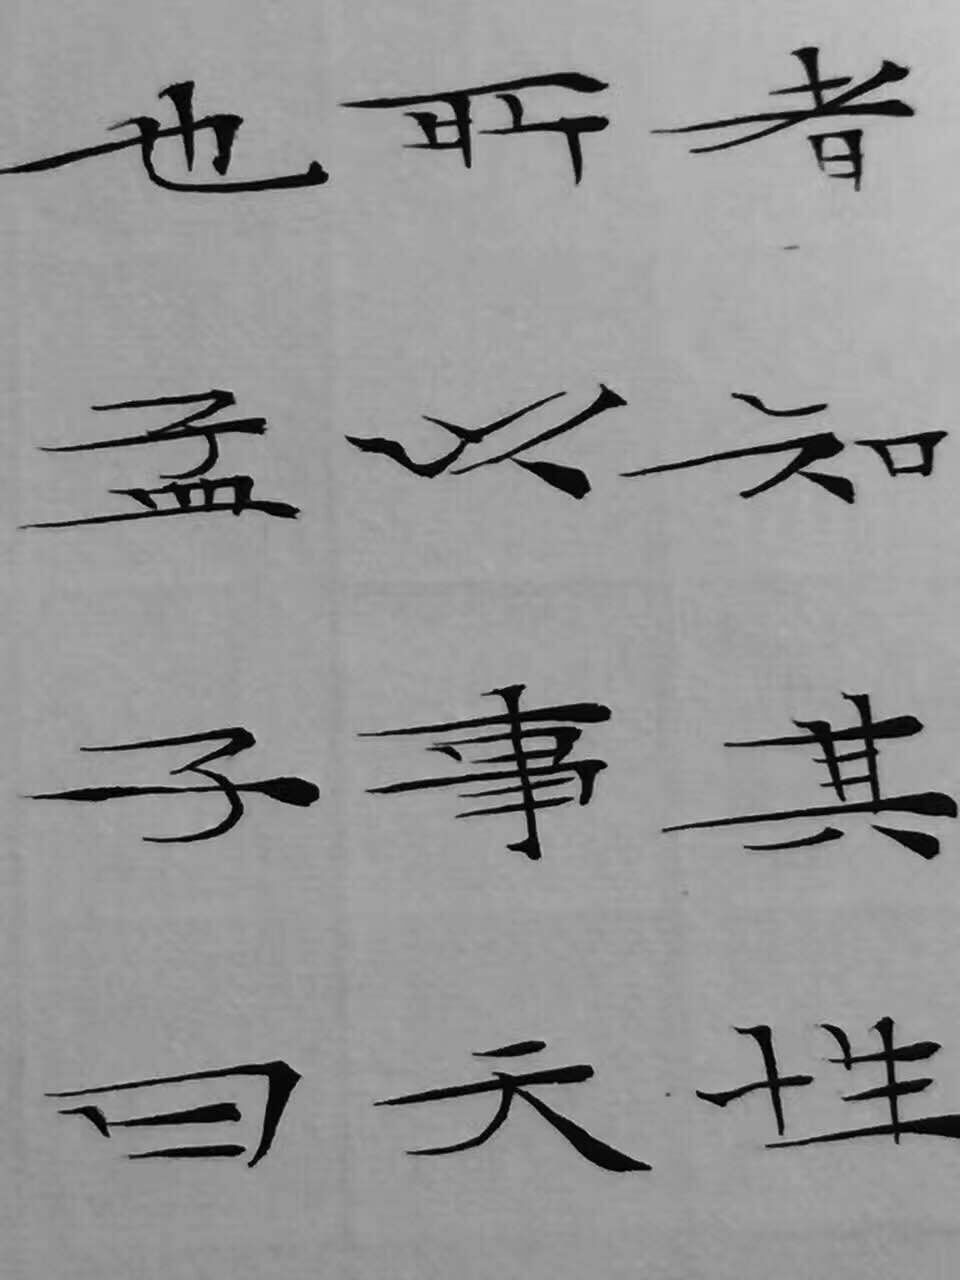 者知其性
所以事天
也孟子曰